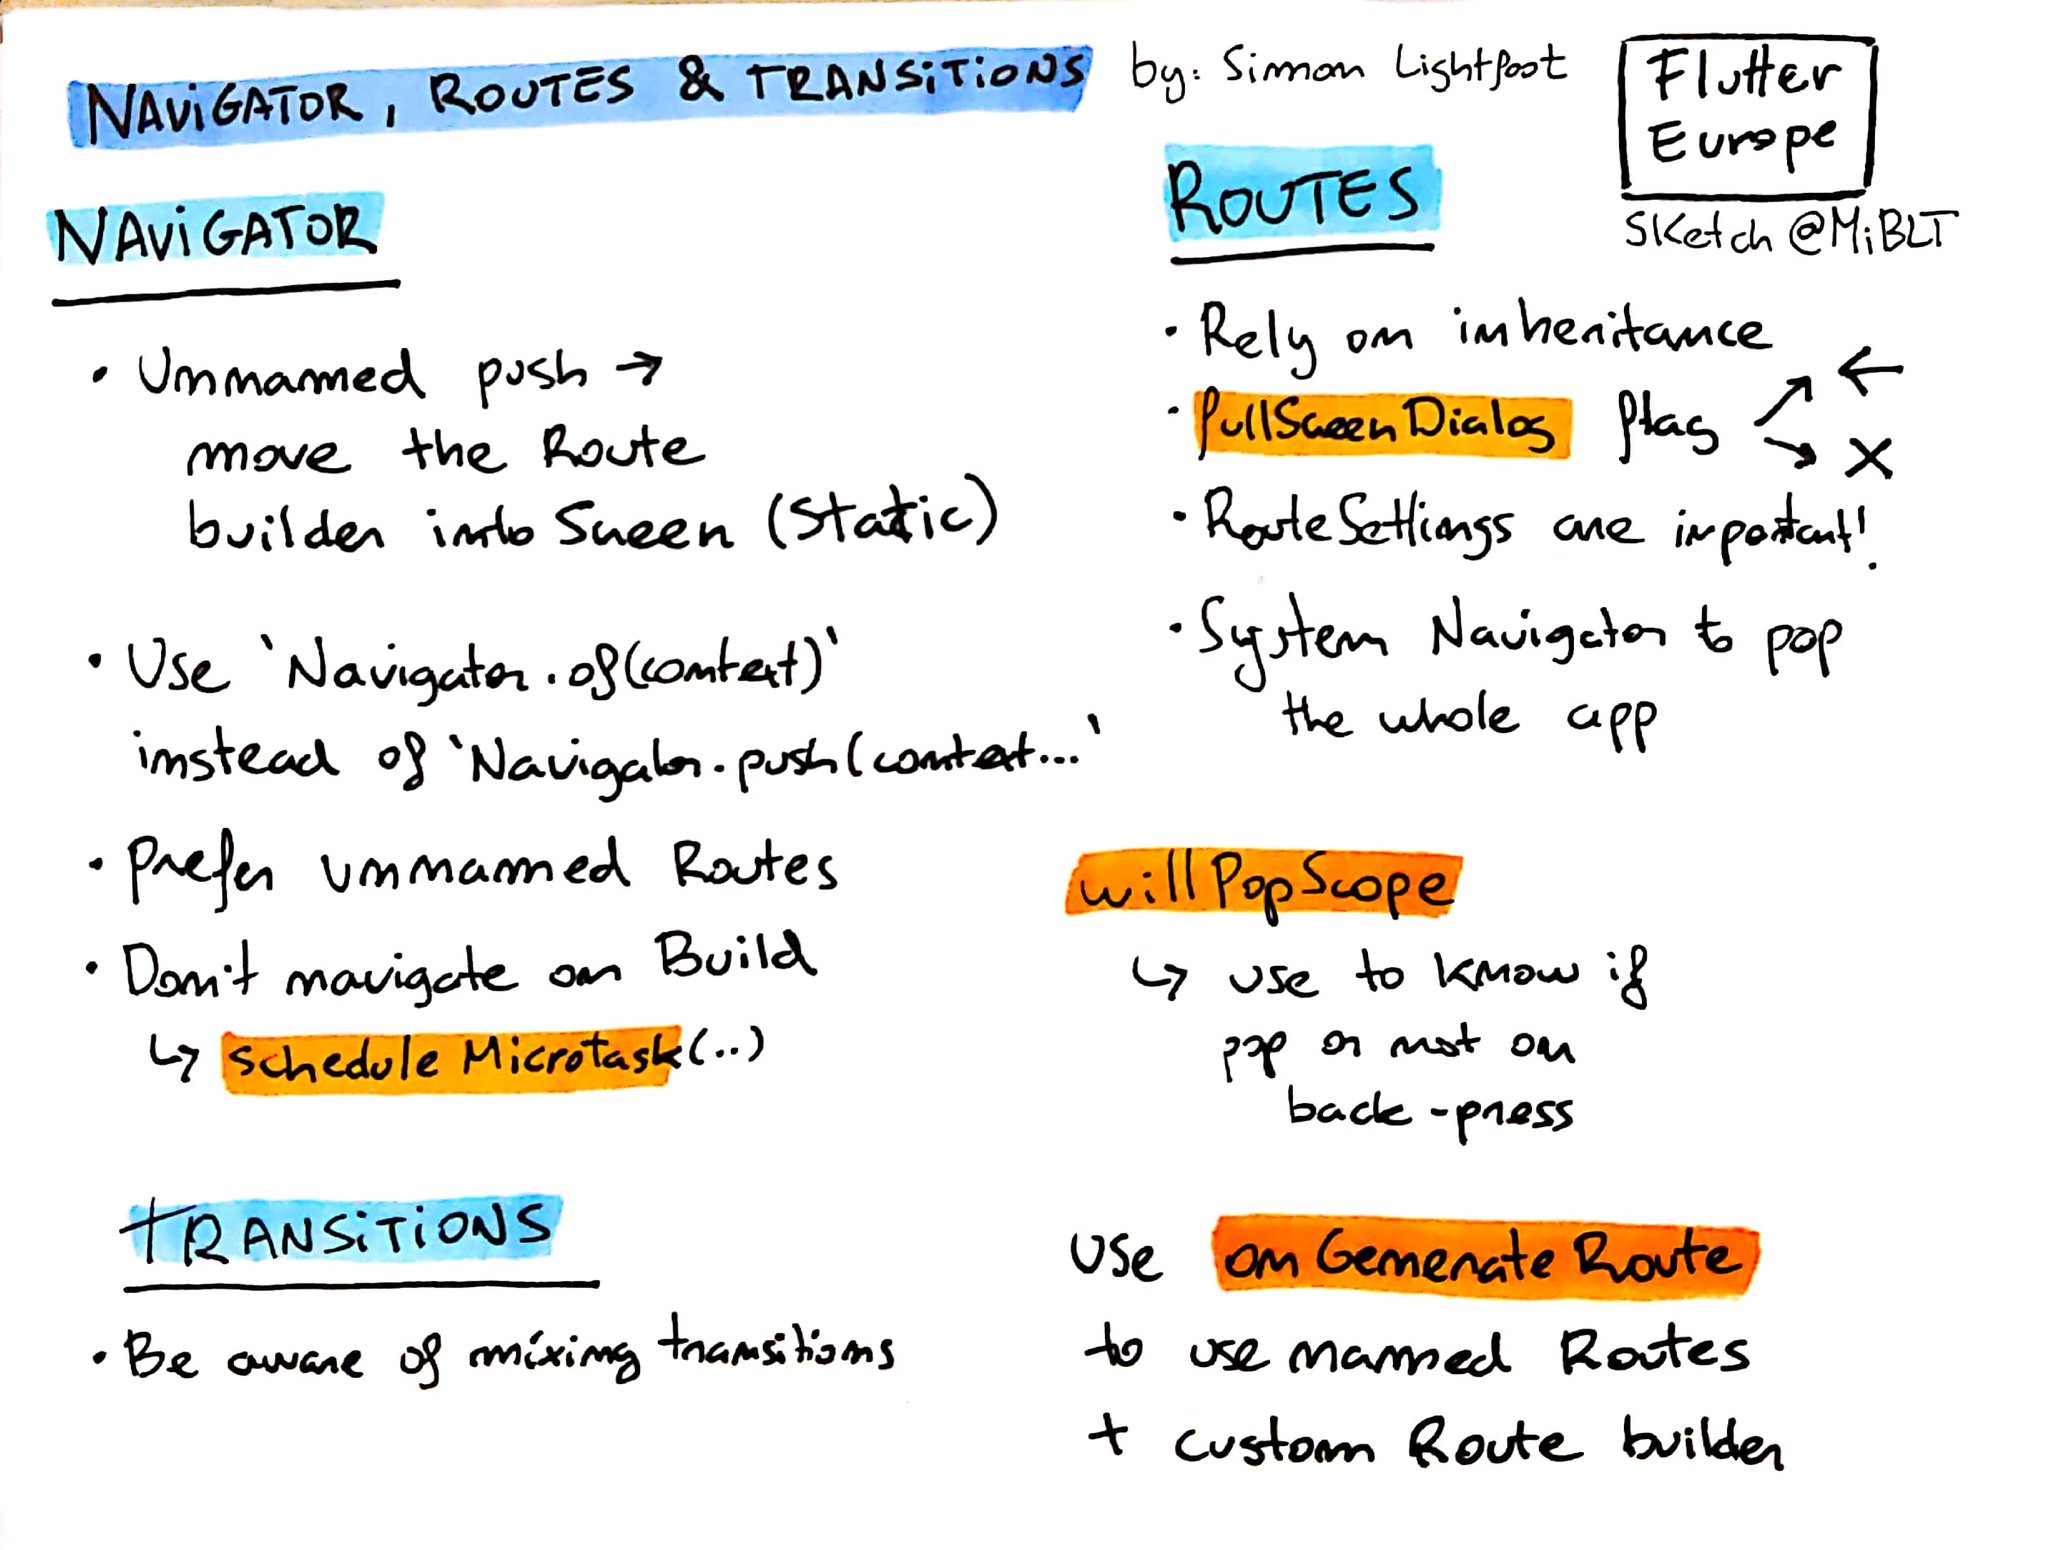 NAViGATOR, ROUTES & TRANSiTiONS
by: Simon Lightfoot
Flutter
Europe
Sketch @MiBLT
NAViGATOR
• Unnamed push →
move the Route
builder into Screen (Static)
• Use `Navigator.of(context)`
instead of `Navigator.push(context...`
• Prefer unnamed Routes
• Don't navigate on Build
↳ scheduleMicrotask(..)
TRANSiTiONS
• Be aware of mixing transitions
ROUTES
• Rely on inheritance
• fullScreenDialog flag ↗ ←
↘ X
• RouteSettings are important!
• System Navigator to pop
the whole app
willPopScope
↳ use to know if
pop or not on
back-press
Use onGenerateRoute
to use named Routes
+ custom Route builder